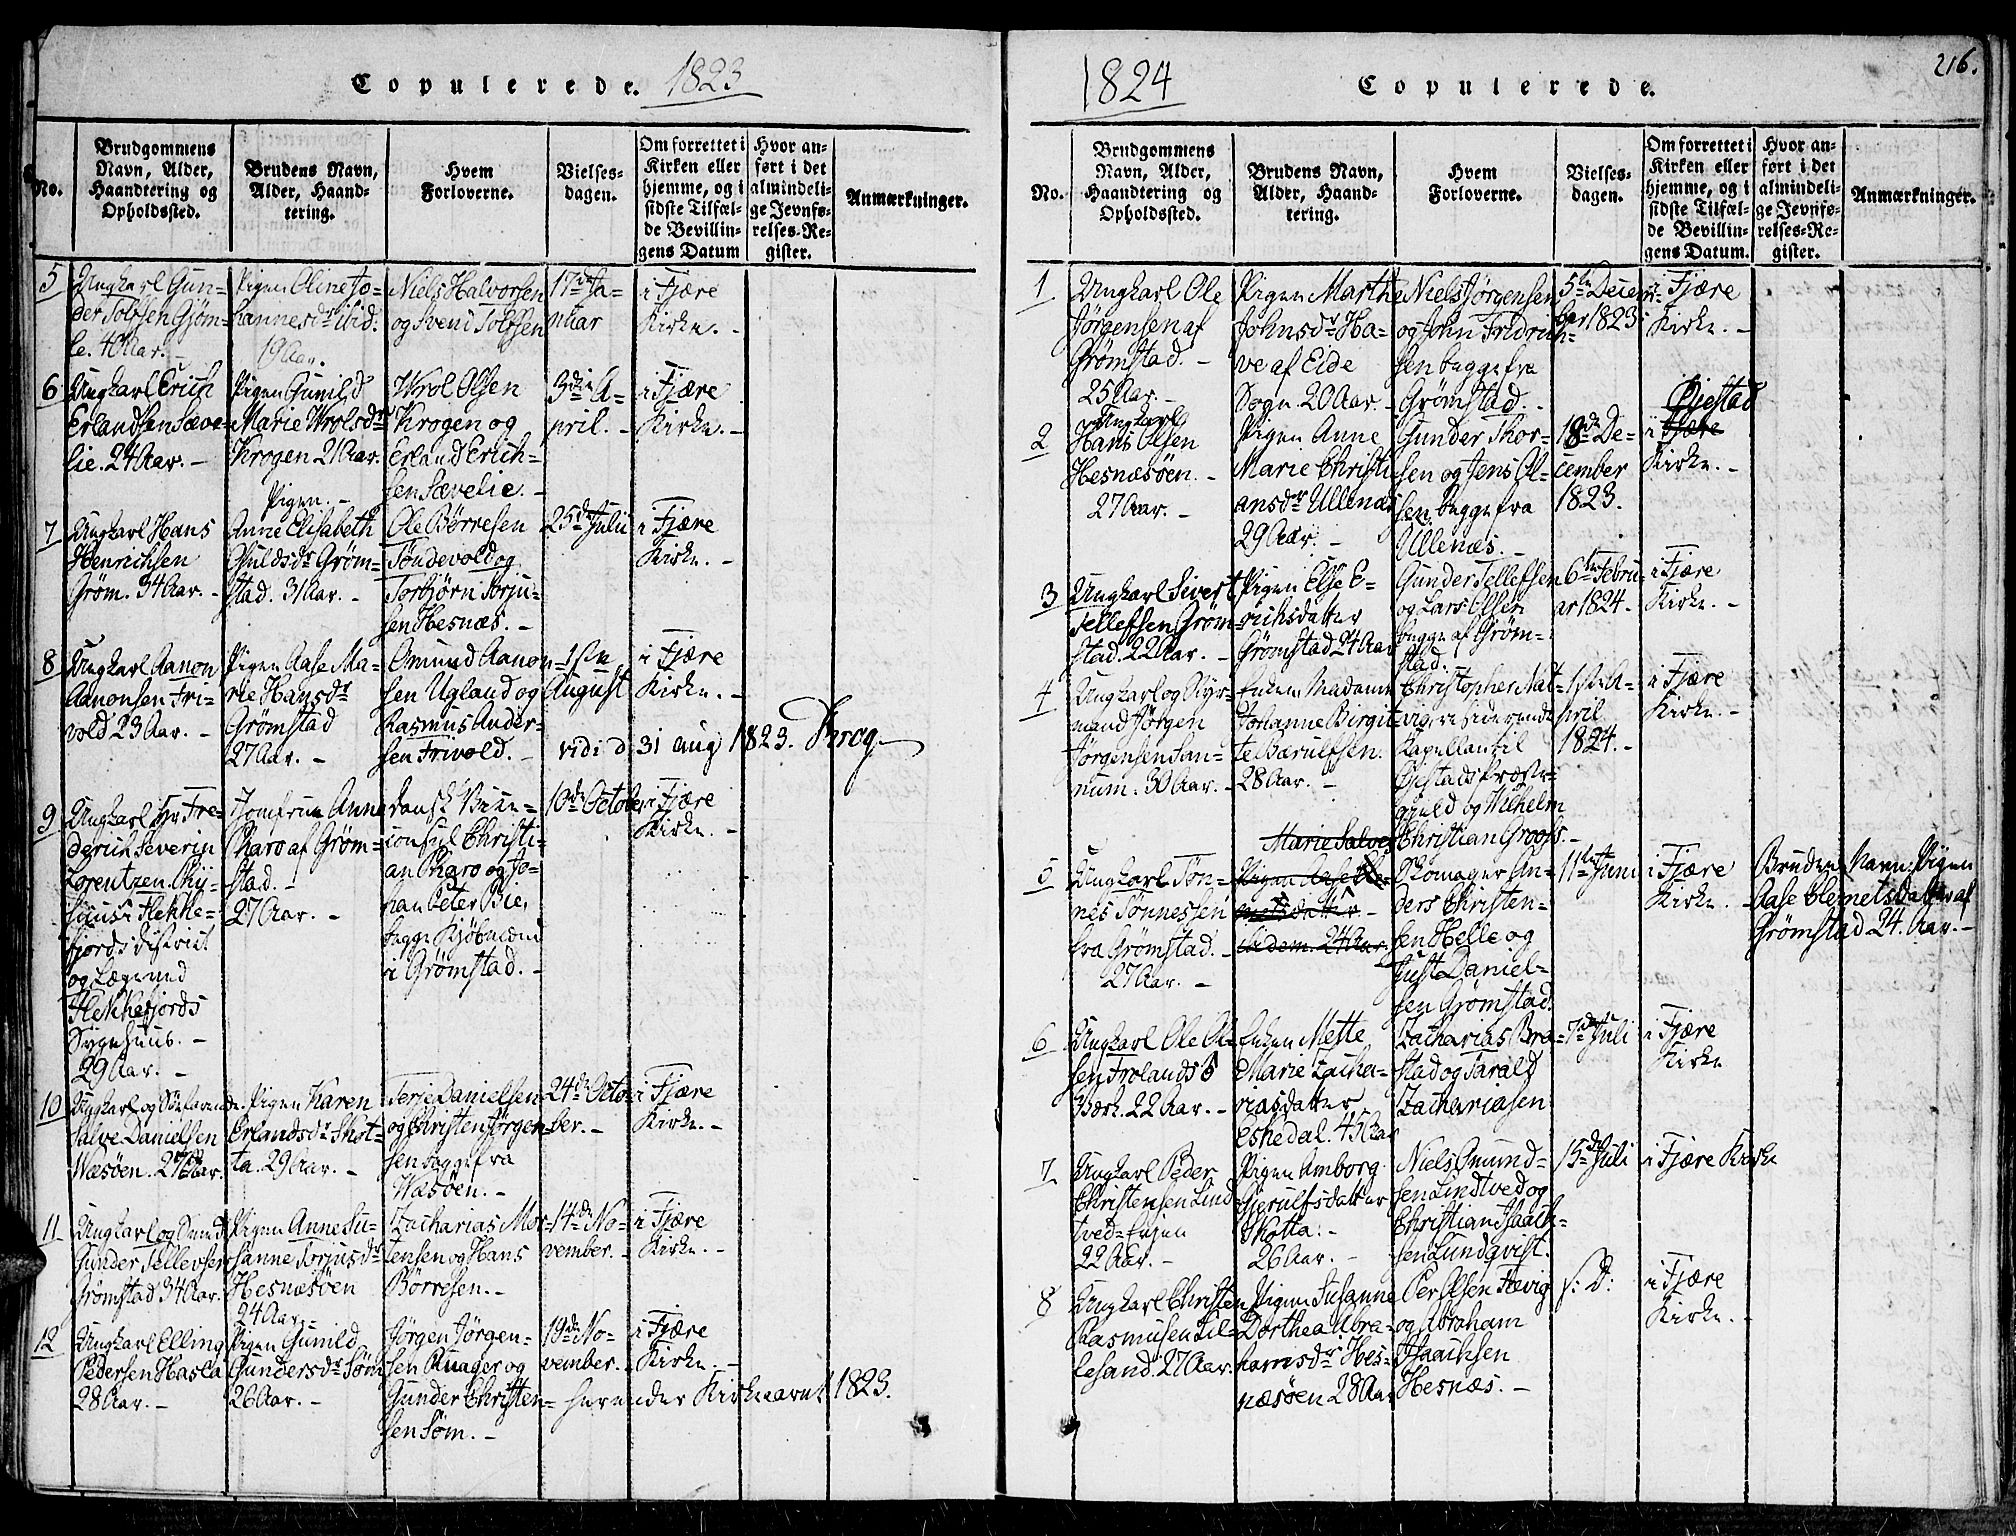 Copulerede. 1823
No.
Brudgommens
Navn, Alder,
Haandtering og
Opholdssted.
Brudens Navn,
Alder, Haand-
tering.
Hvem
Forloverne.
Vielses-
dagen.
Om forrettet i
Kirken eller
hjemme, og i
sidste Tilfæl-
de Bevillin-
gens Datum
Hvor an-
ført i det
almindeli-
ge Jevnfø-
relses-Re-
gister.
Anmærkninger.
5
Ungkarl Gun-
der Tolfsen Gjøm-
le. 40 Aar. -
Pigen Oline Jo-
hannesdr ibid.
19 Aar.
Niels Halvorsen
og Svend Tolfsen
17de Ja-
nuar
i Fjære
Kirke. -
6
Ungkarl Erich
Erlandsen Sæve-
lie. 24 Aar. -
Pigen Gunild
Marie Wrolsdr
Krogen 21 Aar.
Wrol Olsen
Krogen og
Erland Erich-
sen Sævelie. -
3die A-
pril. -
i Fjære
Kirke. -
7
Ungkarl Hans
Henrichsen
Grøm. 34 Aar. -
Pigen. -
Anne Elisabeth
Guldsdr Grøm-
stad. 31 Aar. -
Ole Børresen
Tøndevold og
Torbjørn Torju-
sen Hesnæs. -
25de Julii
i Fjære
Kirke. -
8
Ungkarl Aanon
Aanonsen Fri-
vold 23 Aar. -
Pigen Aase Ma-
rie Hansdr
Grømstad
27 Aar. -
Omund Aanon-
sen Ugland og
Rasmus Ander-
sen Frivold. -
1ste
August
i Fjære
Kirke. -
vidi d 31 aug 1823. Krog
9
Ungkarl Hr Fre-
derich Severin
Lorentzen Phy-
sicus i Flekke-
fjords District
og Læge ved
Flekkefjords
Sygehuus. -
29 Aar. -
Jomfrue Anne
Pharo af Grøm-
stad. -
27 Aar. -
dansk Vice-
consul Christi-
an Pharo og Jo-
han Peter Bie,
begge Kjøbmænd
i Grømstad. -
10de October
i Fjære
Kirke. -
10
Ungkarl og Søefarende
Salve Danielsen
Wæsøen. 27 Aar.
Pigen Karen
Erlandsdr Skot-
ta. 29 Aar. -
Terje Danielsen
og Christen Jørgen-
sen begge fra
Wæsøen. -
24de Octo-
ber. -
i Fjære
Kirke. -
11
Ungkarl og
Gunder Tellevsen
Grømstad 34 Aar.
Pigen Anne Su-
sanne Torjusdr
Hesnæsøen
24 Aar. -
Zacharias Mor-
tensen og Hans
Børresen. -
14de No-
vember. -
i Fjære
Kirke. -
12
Ungkarl Elling
Pedersen Hasla
28 Aar. -
Pigen Gunild
Gundersdr Søm
26 Aar. -
Jørgen Jørgen-
sen Ruager og
Gunder Christen-
sen Søm. -
19de No-
vember. -
i Fjære
Kirke. -
her ender Kirkeaaret 1823.
1824 Copulerede. 216.
No.
Brudgommens
Navn, Alder,
Haandtering og
Opholdssted.
Brudens Navn,
Alder, Haand-
tering.
Hvem
Forloverne.
Vielses-
dagen.
Om forrettet i
Kirken eller
hjemme, og i
sidste Tilfæl-
de Bevillin-
gens Datum.
Hvor an-
ført i det
almindeli-
ge Jevnfø-
relses-Re-
gister.
Anmærkninger.
1
Ungkarl Ole
Jørgensen af
Grømstad. -
25 Aar. -
Pigen Marthe
Johnsdr Ha-
ve af Eide
Sogn 20 Aar. -
Niels Jørgensen
og John Fredrich-
sen begge fra
Grømstad. -
5te Decem-
ber 1823
i Fjære
Kirke. -
2
Ungkarl
Hans Olsen
Hesnæsøen. -
27 Aar. -
Pigen Anne
Marie Christi-
ansdr Ullenæs
29 Aar. -
Gunder Thor-
sen og Jens Ol-
sen begge fra
Ullenæs. -
18de De-
cember
1823.
Øiestad
i Fjære
Kirke. -
3
Ungkarl Sivert
Tellefsen Grøm-
stad. 22 Aar. -
Pigen Else E-
richsdatter
Grømstad 24 Aar
Gunder Tellefsen
og Lars Olsen
begge af Grøm-
stad.
6te Febru-
ar 1824. -
i Fjære
Kirke. -
4
Ungkarl og Styr-
mand Jørgen
Jørgensen San-
num. 30 Aar. -
Enken Madame
Johanne Birgit-
te Bærulfsen.
28 Aar. -
Christopher Nat-
vig, residerende
Kapellan til
Øjestads Præste-
gjeld og Wilhelm
Christian Grooss. -
1ste A-
pril
1824. -
i Fjære
Kirke. -
5
Ungkarl Tøn-
nes Tønnessen
fra Grømstad. -
27 Aar. -
Marie Salves
Pigen Aase Cle-
metsdatter -
ibidem. 24 Aar.
Skomager An-
ders Christen-
sen Helle og
Just Daniel-
sen Grømstad.
11te Juni
i Fjære
Kirke. -
Brudens Navn: Pigen
Aase Clemetsdatter af
Grømstad 24. Aar. -
6
Ungkarl Ole Ol-
sen Frolands
Værk. 22 Aar. -
Enken Mette
Marie Zacha-
riasdatter
Eskedal. 45 Aar
Zacharias Bra-
stad og Tarald
Zachariasen
7de Juli
i Fjære
Kirke
7
Ungkarl Peder
Christensen Lind-
tved-Eejen
22 Aar. -
Pigen Amborg
Gjerulfsdatter
Skotta. -
26 Aar. -
Niels Omund-
sen Lindtved og
Christian Isach-
sen Lundqvist.
15de Juli
i Fjære Kirke
8
Ungkarl Christen
Rasmusen Lil-
lesand. 27 Aar.
Pigen Susanne
Dorthea Abra-
hamsdr Hes-
næsøen 28 Aar
Per Olsen Fævig
og Abraham
Isaachsen
Hesnæs. -
s: D:
i Fjære
Kirke. -